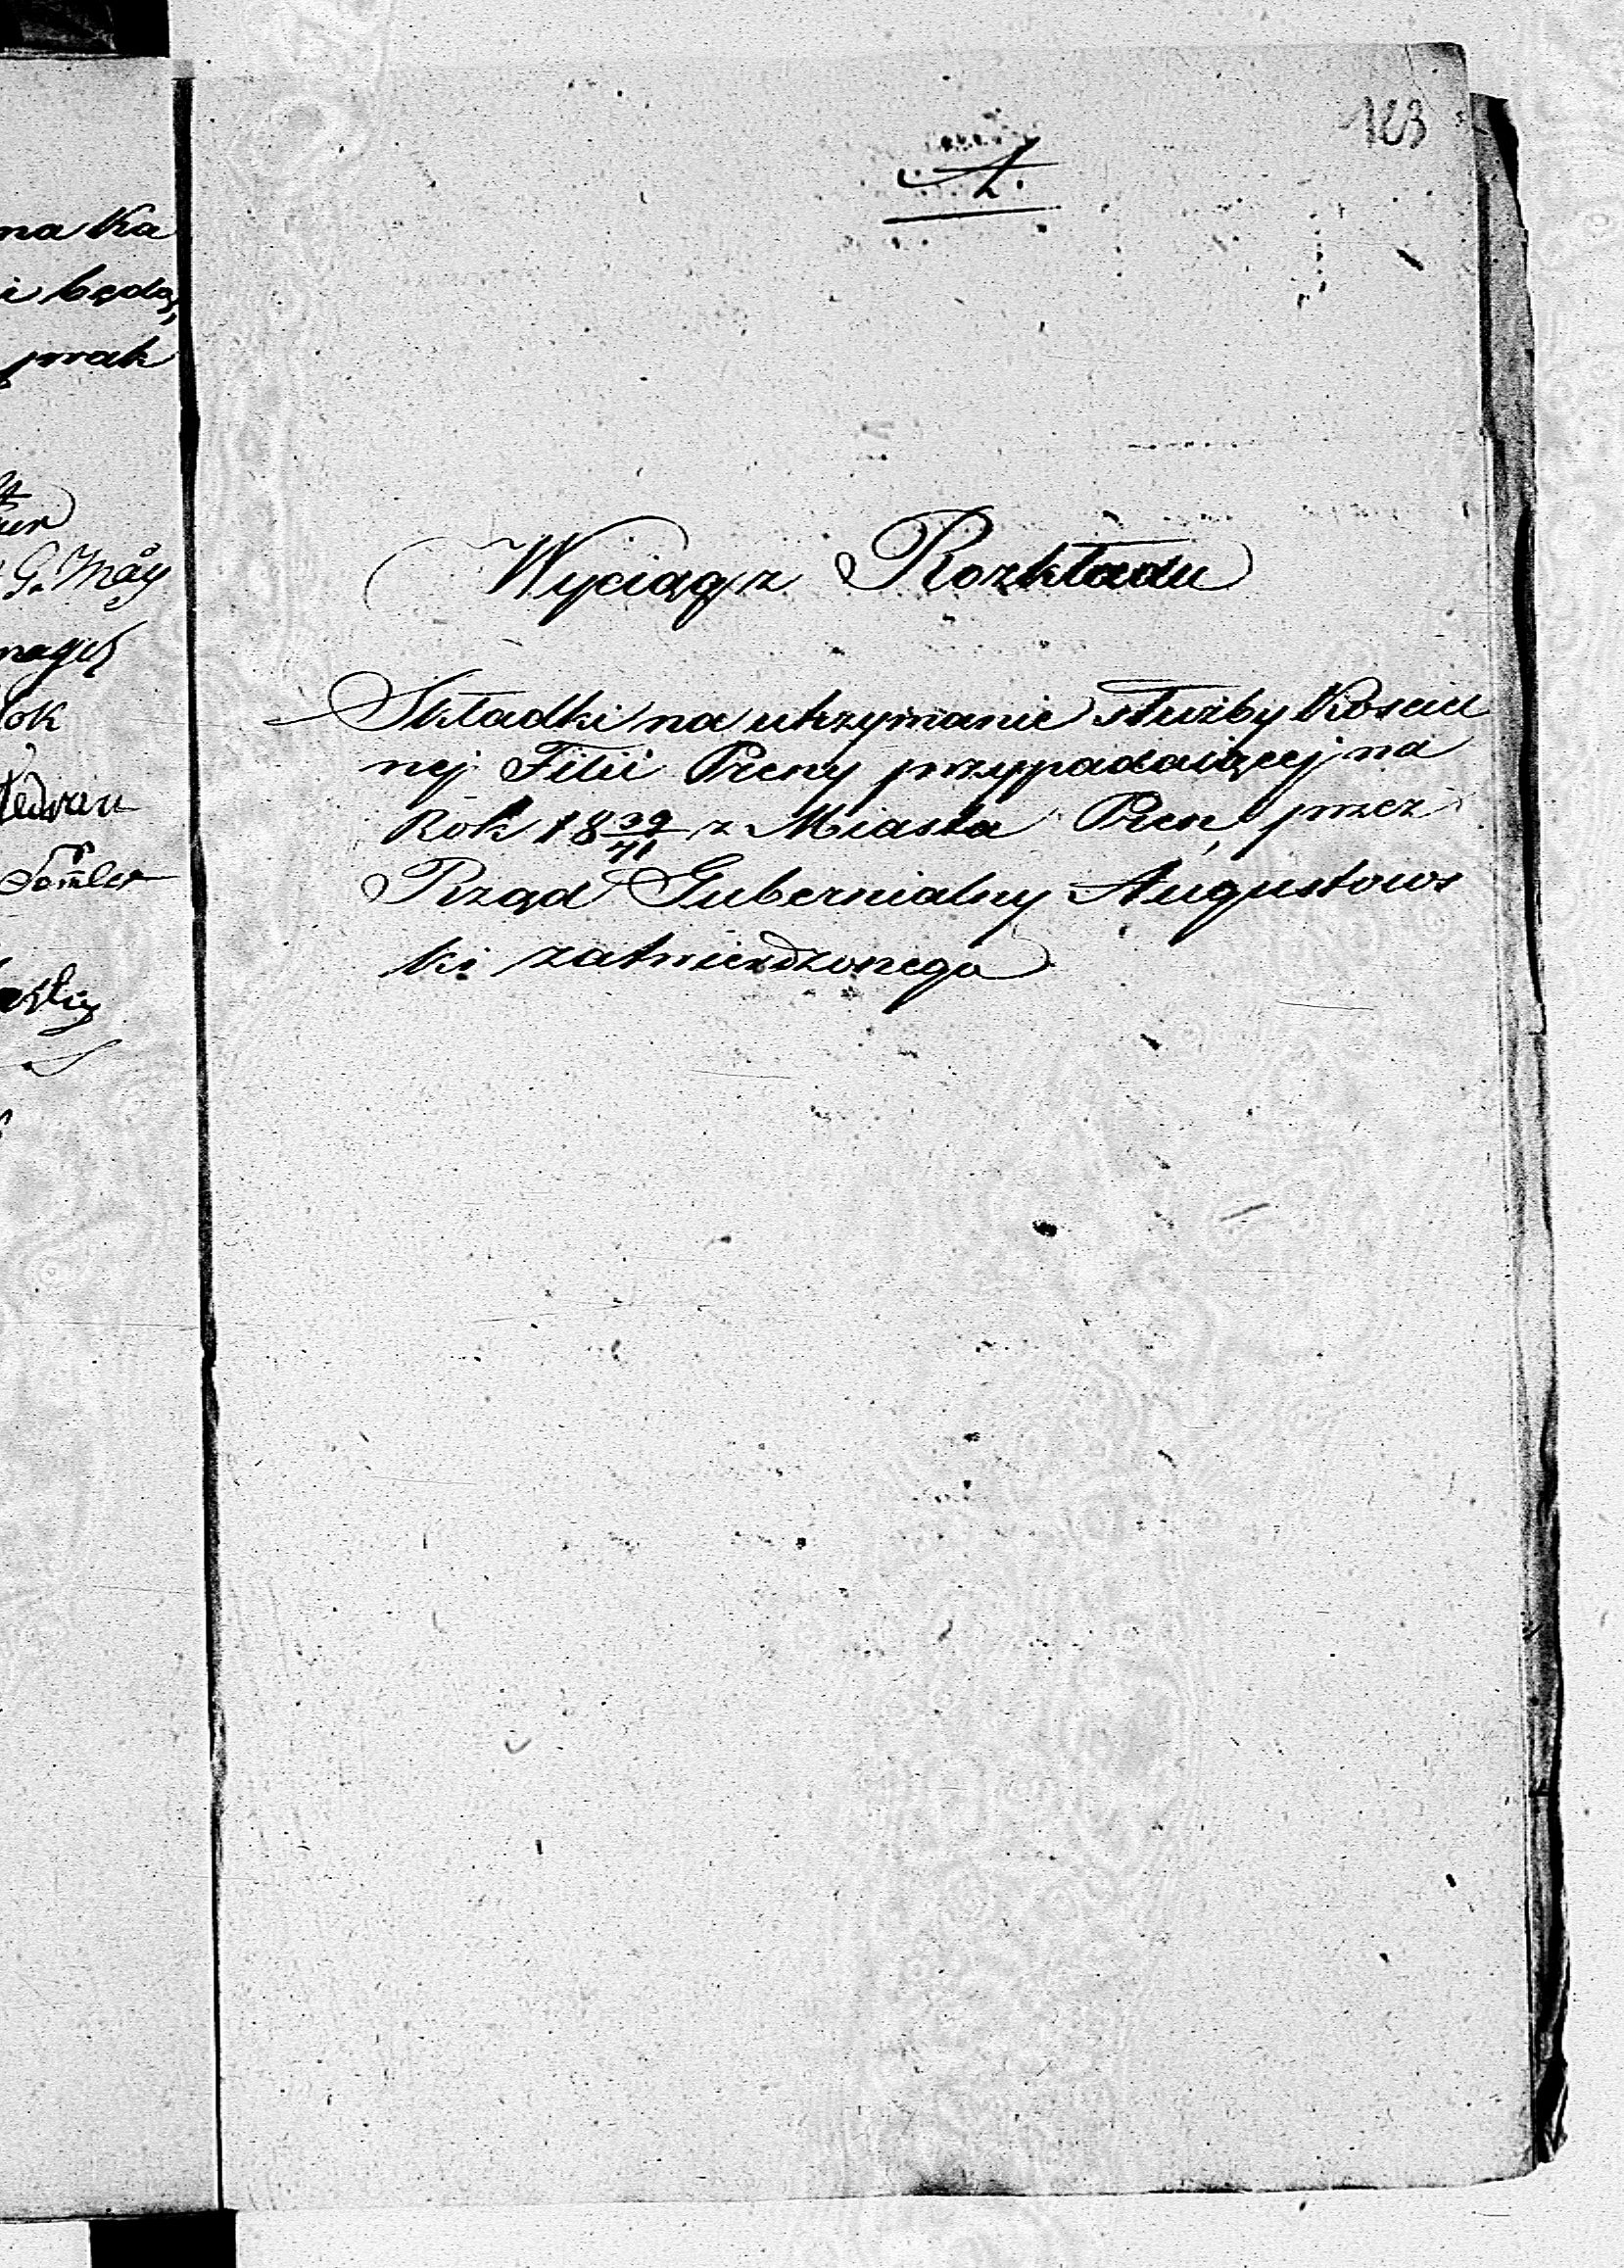 na Ka
i będą
prak
G. May
ok
123
A.
Wyciąg z Rozkładu
Składki na utrzymanie służby Koscieł
nej Filii Preny przypadaiącej na
Rok 18 39/41 z Miasta Pren, przez
Rząd Gubernialny Augustows
ki zatwierdzonego